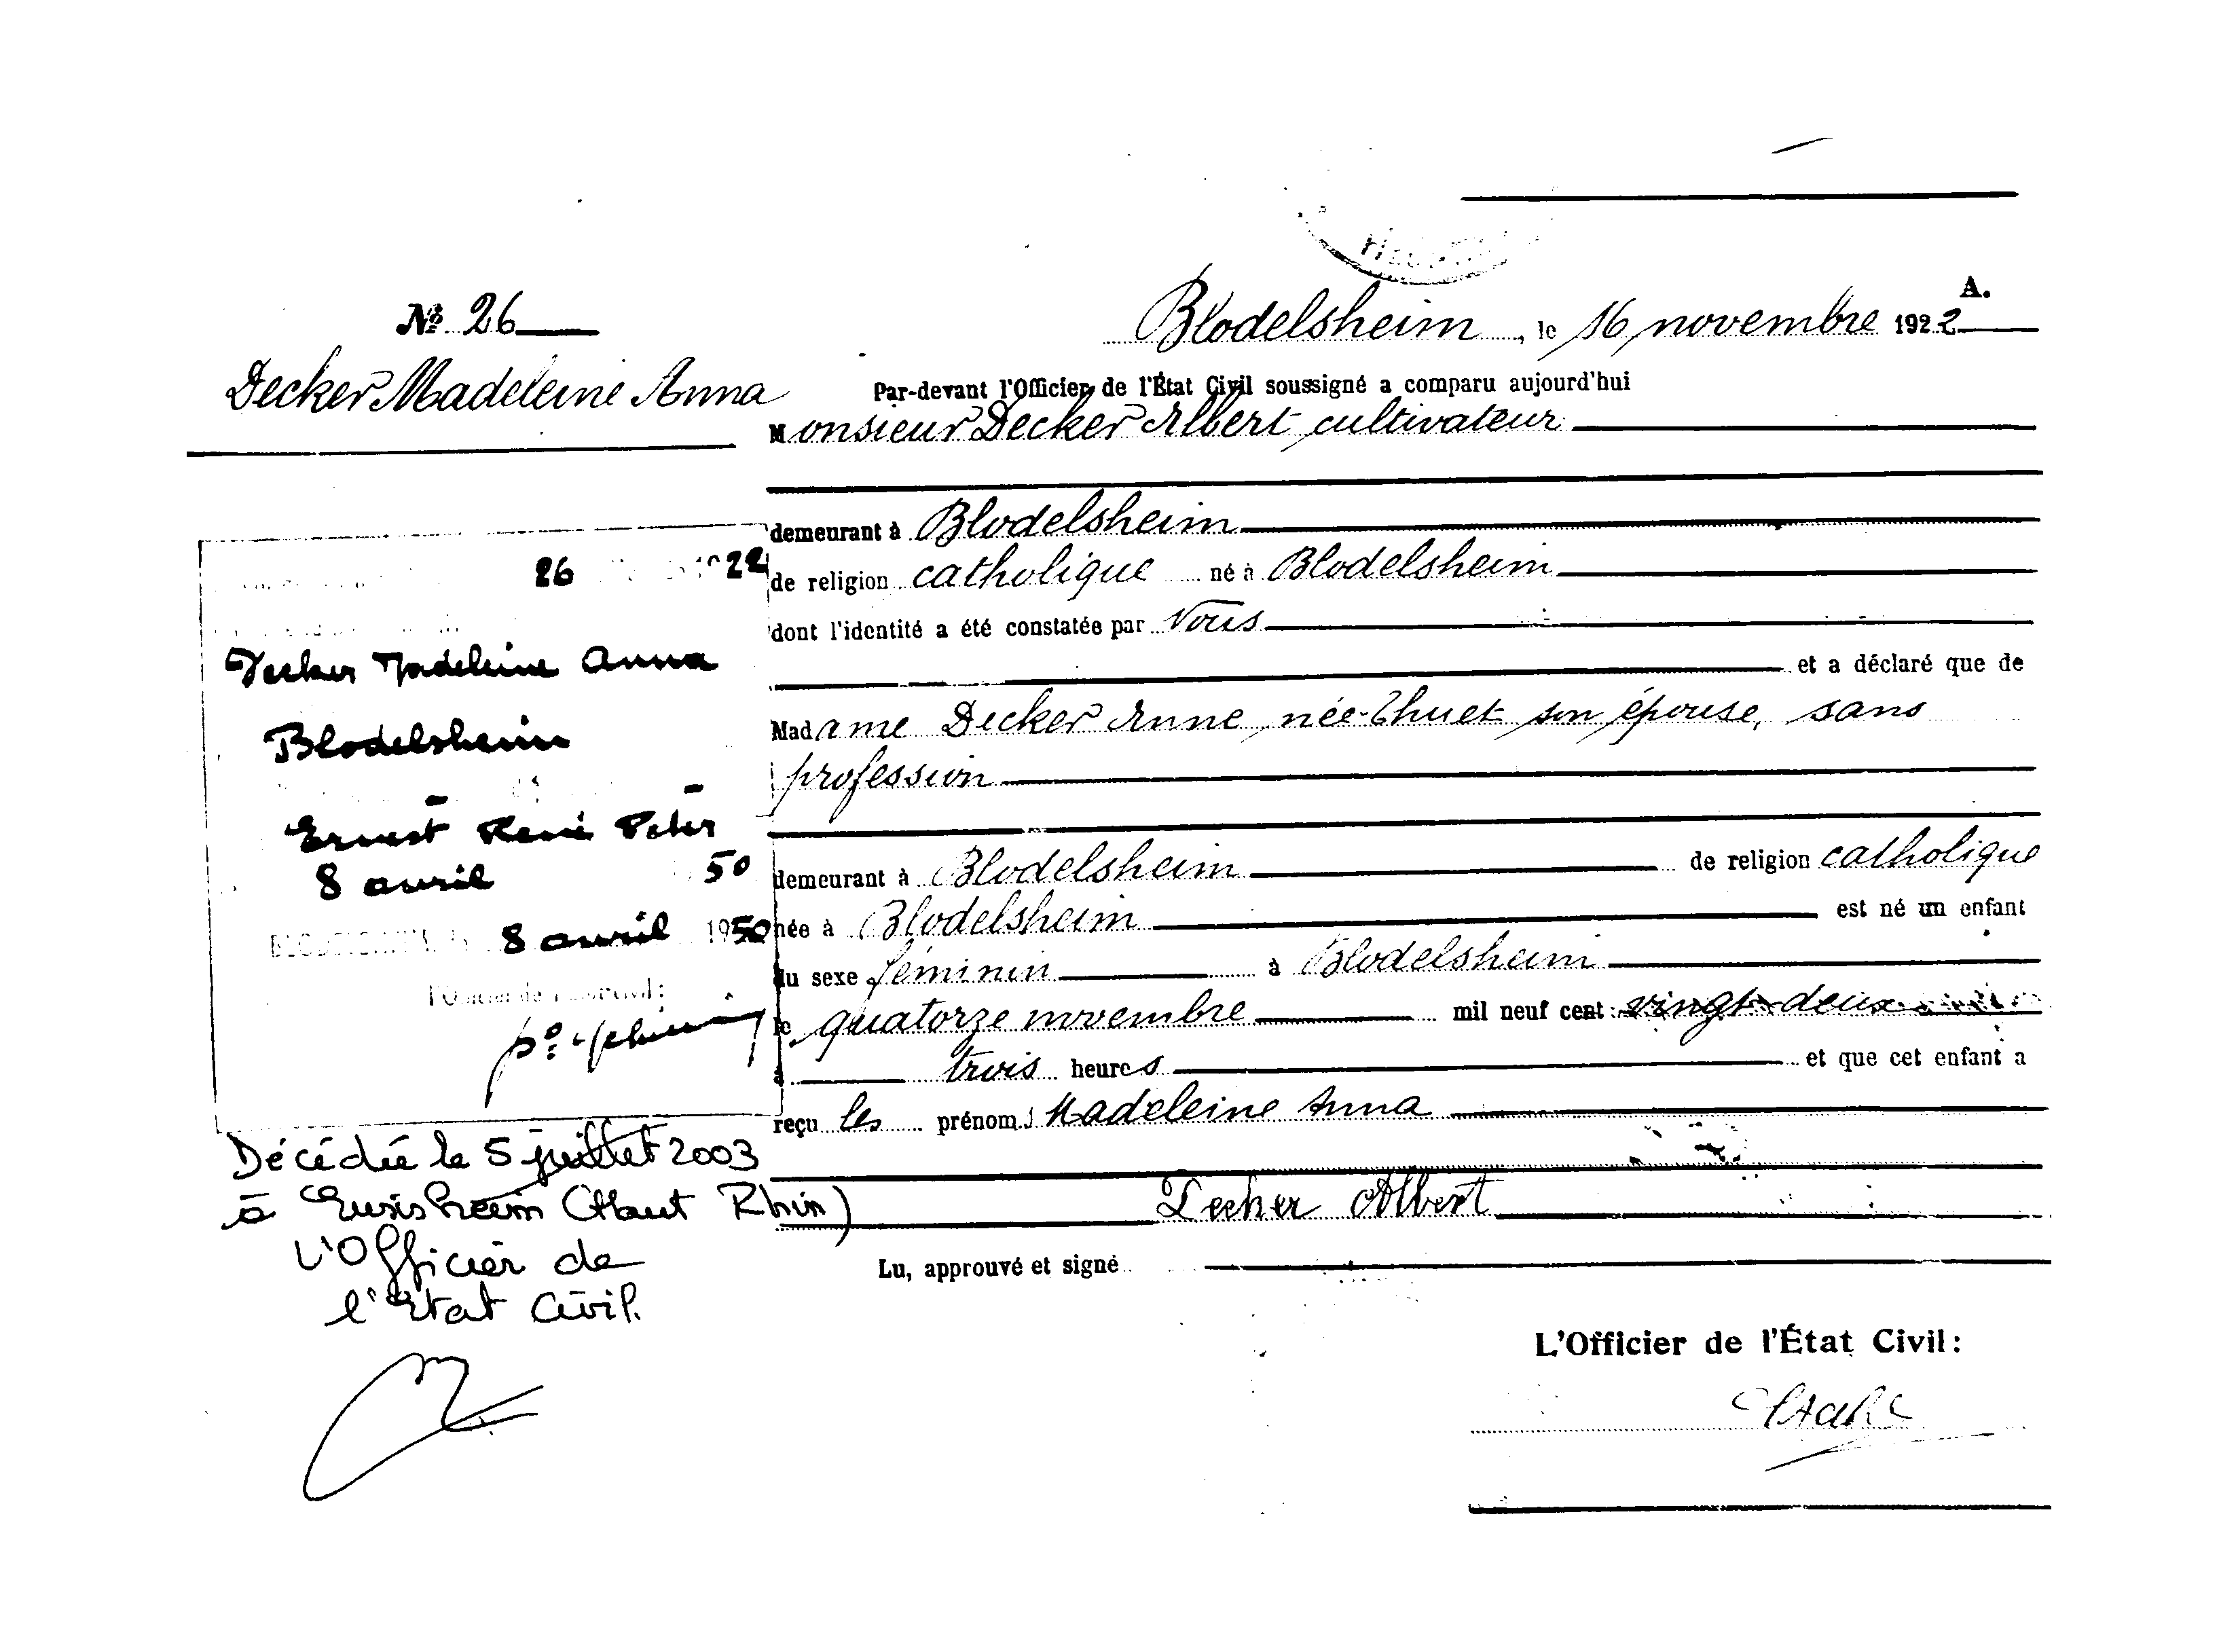 A.
Nº 26
Blodelsheim, le 16 novembre 1922
Decker Madeleine Anna
Par-devant l'Officier de l'État Civil soussigné a comparu aujourd'hui
Monsieur Decker Albert, cultivateur
demeurant à Blodelsheim
de religion catholique né à Blodelsheim
dont l'identité a été constatée par
et a déclaré que de
Madame Decker Anne, née Thuet son épouse, sans
profession
demeurant à Blodelsheim de religion catholique
née à Blodelsheim est né un enfant
du sexe féminin à Blodelsheim
le quatorze novembre mil neuf cent vingt-deux
à trois heures et que cet enfant a
reçu les prénoms Madeleine Anna
Decker Albert
Lu, approuvé et signé
L'Officier de l'État Civil:
26 1922
Decker Madeleine Anna
Blodelsheim
Ernest René Peter
8 avril 50
BLODELSHEIM, le 8 avril 1950
l'Officier de l'état civil:
Décédée le 5 juillet 2003
à Ensisheim (Haut Rhin)
L'Officier de
l'Etat Civil.